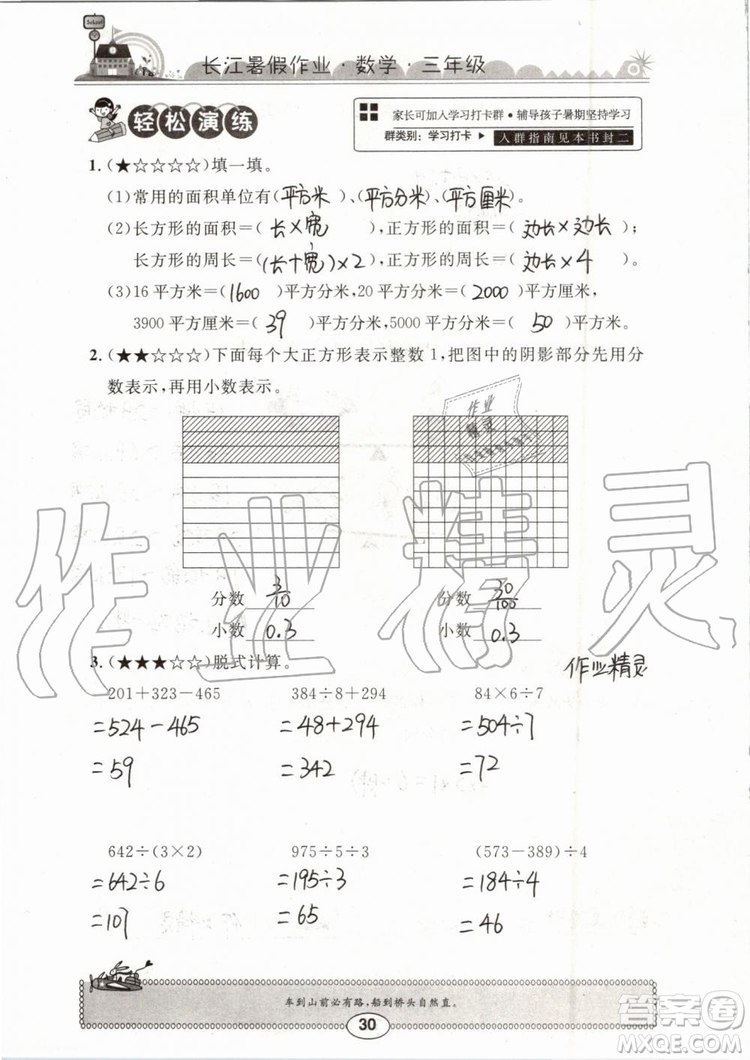 School
长江暑假作业·数学·三年级
轻松演练
家长可加入学习打卡群·辅导孩子暑期坚持学习
群类别：学习打卡 ▶ 入群指南见本书封二
1.(★☆☆☆☆)填一填。
(1)常用的面积单位有(平方米)、(平方分米)、(平方厘米)。
(2)长方形的面积=(长×宽),正方形的面积=(边长×边长);
长方形的周长=((长+宽)×2),正方形的周长=(边长×4)。
(3)16平方米=(1600)平方分米,20平方分米=(2000)平方厘米,
3900平方厘米=(39)平方分米,5000平方分米=(50)平方米。
2.(★★☆☆☆)下面每个大正方形表示整数1,把图中的阴影部分先用分
数表示,再用小数表示。
作业
精灵
作业精灵
分数 3/10 分数 30/100
小数 0.3 小数 0.3
3.(★★★☆☆)脱式计算。
作业精灵
201+323-465 384÷8+294 84×6÷7
=524-465 =48+294 =504÷7
=59 =342 =72
642÷(3×2) 975÷5÷3 (573-389)÷4
=642÷6 =195÷3 =184÷4
=107 =65 =46
车到山前必有路,船到桥头自然直。
30
答案圈
MXQE.COM